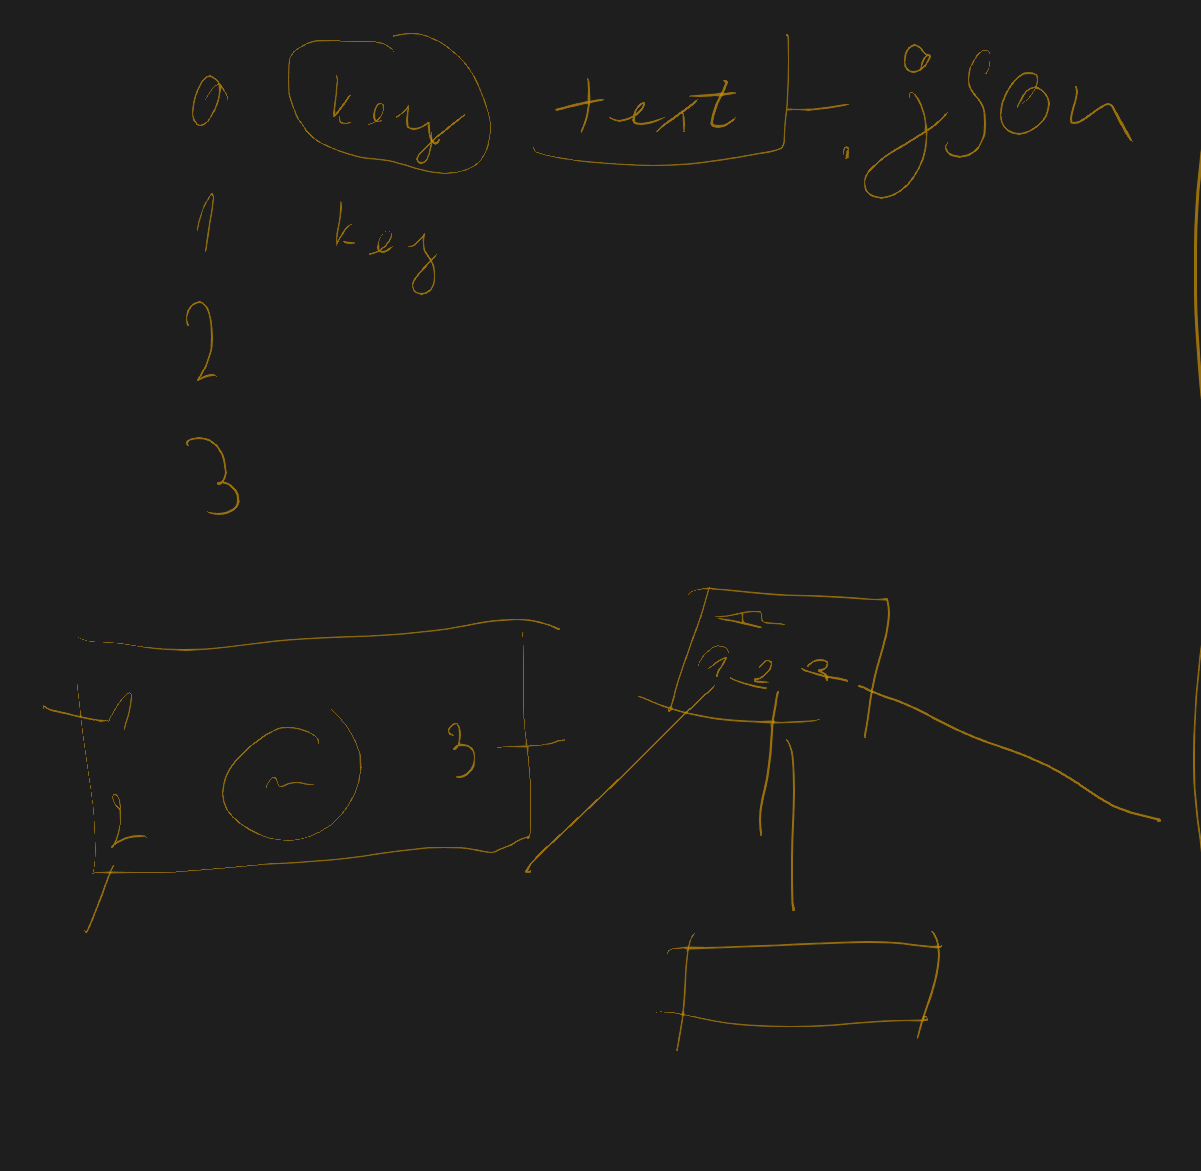 0 key text .json
1 key
2
3
1 2 3
1
3
2